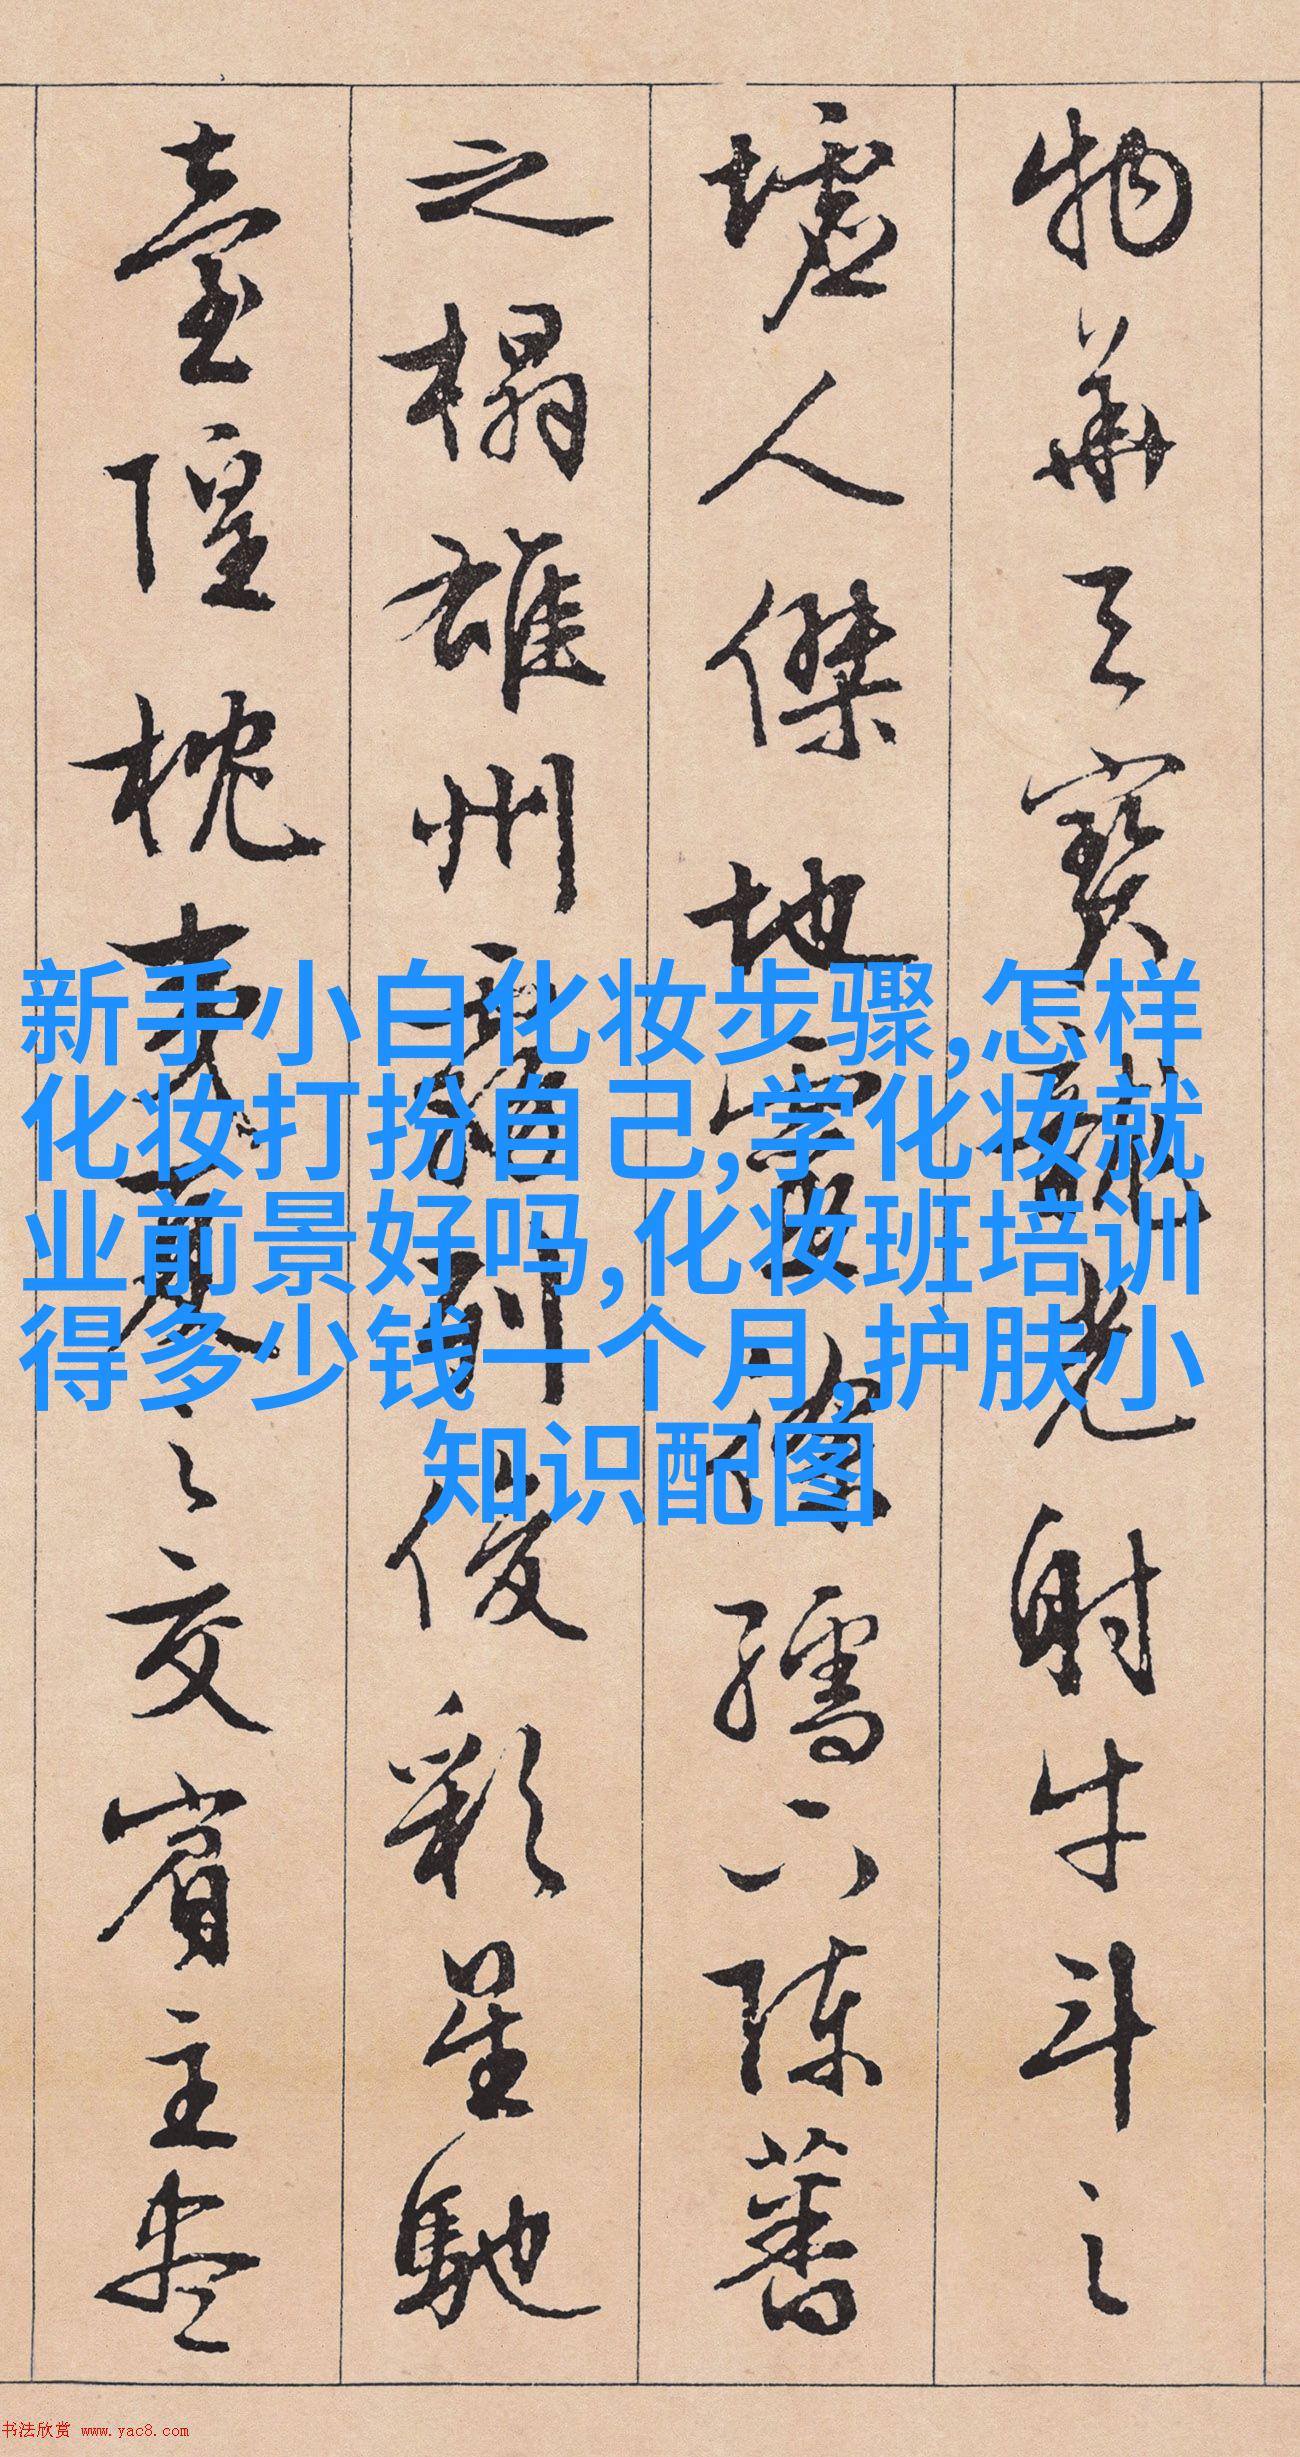 物华天宝龙光射牛斗之
墟人傑地灵徐孺下陈蕃
之榻雄州雾列俊彩星馳
臺隍枕夷夏之交宾主尽
新手小白化妆步骤,怎样
化妆打扮自己,学化妆就
业前景好吗,化妆班培训
得多少钱一个月,护肤小
知识配图
书法欣赏 www.yac8.com